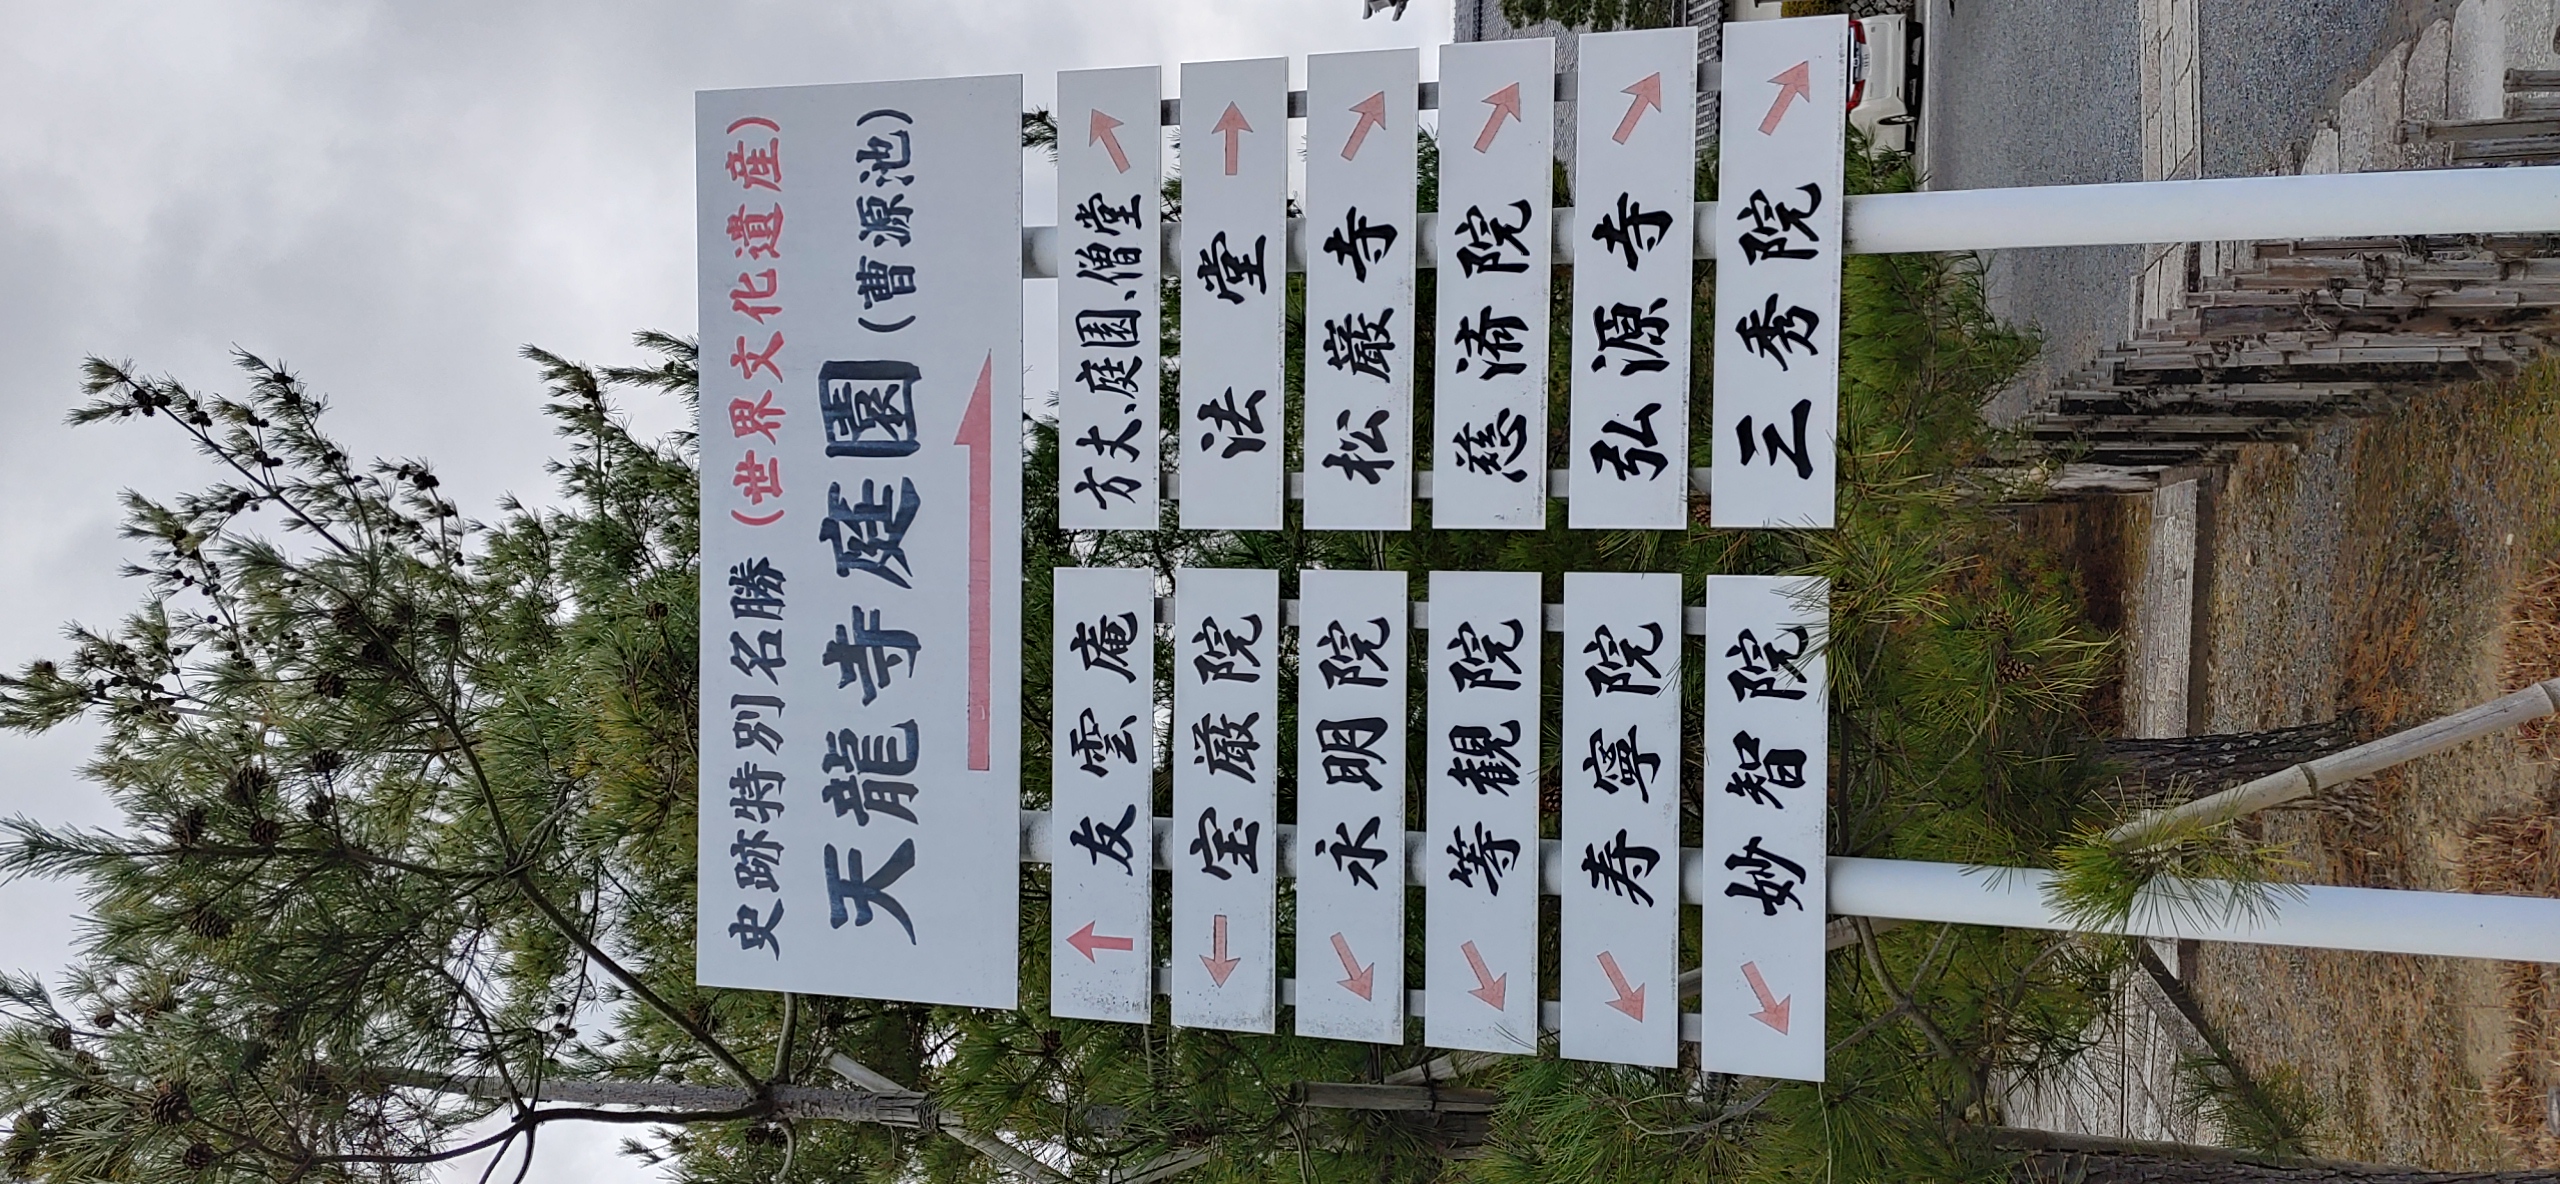 史跡特別名勝(世界文化遺産)
天龍寺庭園(曹源池)
友雲庵
宝厳院
永明院
等観院
寿寧院
妙智院
方丈、庭園、僧堂
法堂
松巌寺
慈済院
弘源寺
三秀院